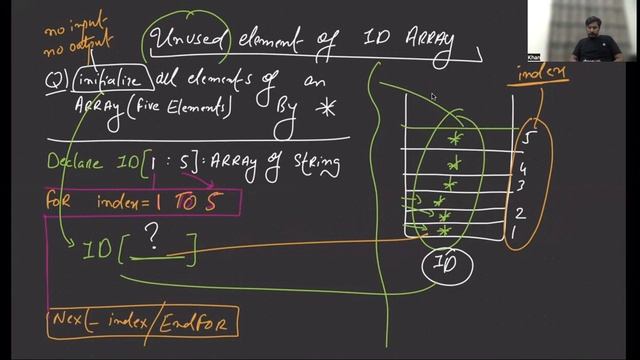 no input
no output
Unused element of 1D ARRAY
Q) initialize all elements of an
ARRAY (five Elements) By *
Declare ID[1 : 5] : ARRAY of String
FOR index = 1 TO 5
ID[ ? ]
Next index / EndFOR
index
* 5
* 4
* 3
*
* 2
* 1
ID
Khan